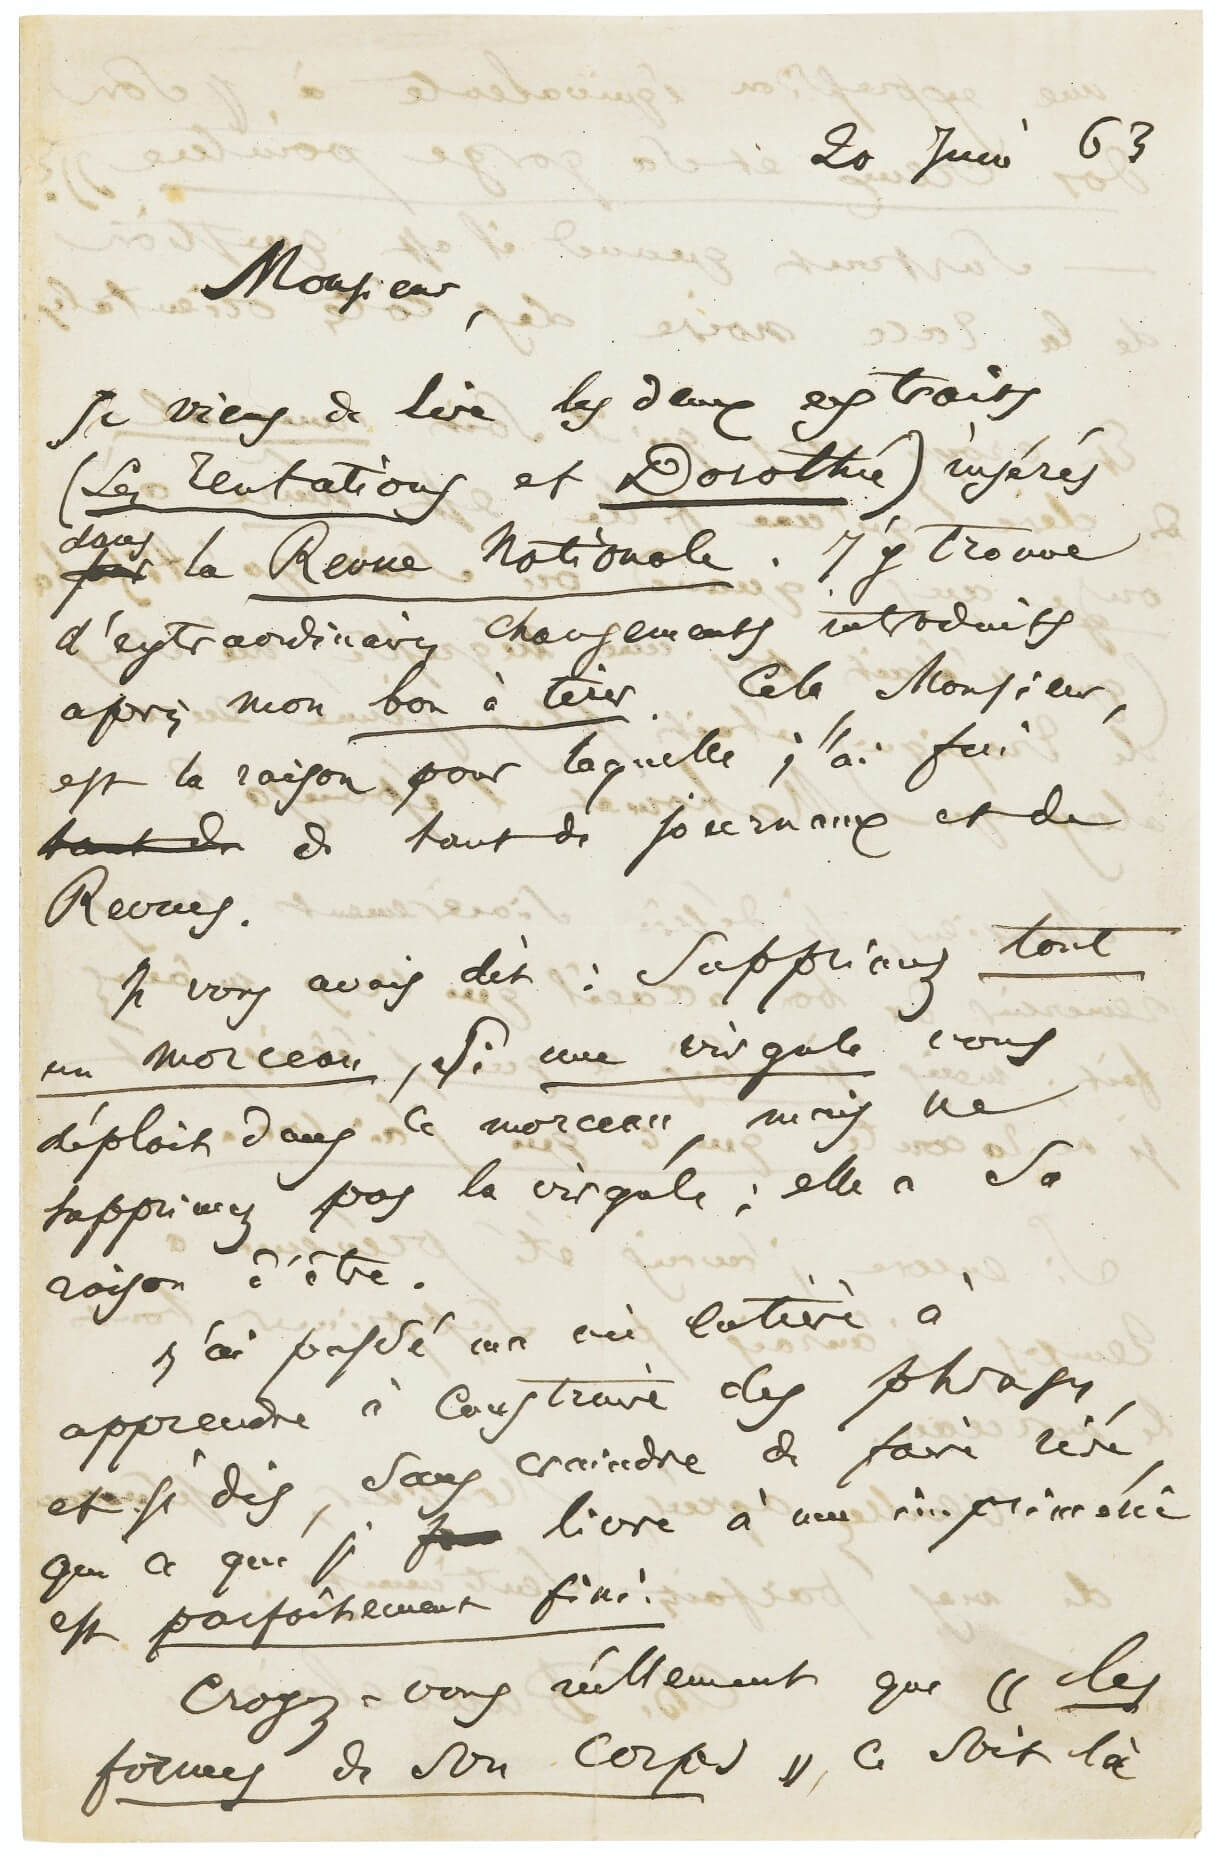 20 Juin 63
Monsieur,
Je viens de lire les deux extraits
(Les Tentations et Dorothée) insérés
dans
la Revue Nationale. J'y trouve
d'extraordinaires changements introduits
après mon bon à tirer. Cela, Monsieur,
est la raison pour laquelle j'ai fui
tant de de tant de journaux et de
Revues.
Je vous avais dit : Supprimez tout
un morceau, si une virgule vous
déplait dans le morceau, mais ne
supprimez pas la virgule ; elle a sa
raison d'être.
J'ai passé ma vie entière à
apprendre à construire des phrases,
et je dis, sans craindre de faire rire,
que ce que je livre à une imprimerie
est parfaitement fini.
Croyez-vous réellement que « les
formes de son corps », ce soit là